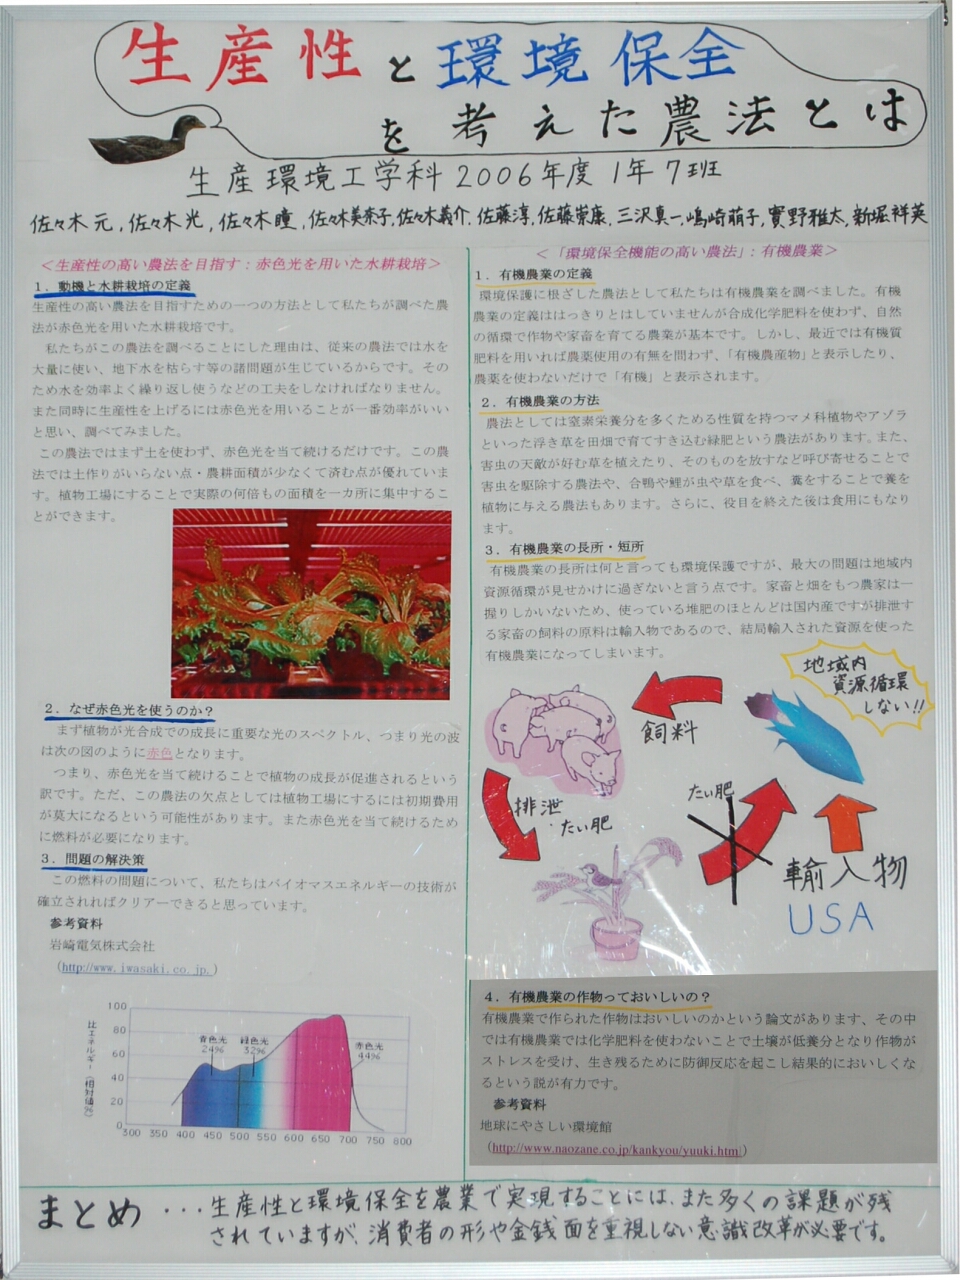 生産性と環境保全
を考えた農法とは
生産環境工学科2006年度 1年7班
佐々木元,佐々木光,佐々木瞳,佐々木美奈子,佐々木義介,佐藤淳,佐藤崇康,三沢真一,嶋崎萌子,寳野雅太,新堀祥英
<生産性の高い農法を目指す:赤色光を用いた水耕栽培>
1.動機と水耕栽培の定義
生産性の高い農法を目指すための一つの方法として私たちが調べた農
法が赤色光を用いた水耕栽培です。
私たちがこの農法を調べることにした理由は、従来の農法では水を
大量に使い、地下水を枯らす等の諸問題が生じているからです。その
ため水を効率よく繰り返し使うなどの工夫をしなければなりません。
また同時に生産性を上げるには赤色光を用いることが一番効率がいい
と思い、調べてみました。
この農法ではまず土を使わず、赤色光を当て続けるだけです。この農
法では土作りがいらない点・農耕面積が少なくて済む点が優れていま
す。植物工場にすることで実際の何倍もの面積を一カ所に集中するこ
とができます。
2.なぜ赤色光を使うのか?
まず植物が光合成での成長に重要な光のスペクトル、つまり光の波
は次の図のように赤色となります。
つまり、赤色光を当て続けることで植物の成長が促進されるという
訳です。ただ、この農法の欠点としては植物工場にするには初期費用
が莫大になるという可能性があります。また赤色光を当て続けるため
に燃料が必要になります。
3.問題の解決策
この燃料の問題について、私たちはバイオマスエネルギーの技術が
確立されればクリアーできると思っています。
参考資料
岩崎電気株式会社
(http://www.iwasaki.co.jp.)
比エネルギー(相対値%)
100
80
60
40
20
0
青色光
24%
緑色光
32%
赤色光
44%
300 350 400 450 500 550 600 650 700 750 800
<「環境保全機能の高い農法」:有機農業>
1.有機農業の定義
環境保護に根ざした農法として私たちは有機農業を調べました。有機
農業の定義ははっきりとはしていませんが合成化学肥料を使わず、自然
の循環で作物や家畜を育てる農業が基本です。しかし、最近では有機質
肥料を用いれば農薬使用の有無を問わず、「有機農産物」と表示したり、
農薬を使わないだけで「有機」と表示されます。
2.有機農業の方法
農法としては窒素栄養分を多くためる性質を持つマメ科植物やアゾラ
といった浮き草を田畑で育てすき込む緑肥という農法があります。また、
害虫の天敵が好む草を植えたり、そのものを放すなど呼び寄せることで
害虫を駆除する農法や、合鴨や鯉が虫や草を食べ、糞をすることで養を
植物に与える農法もあります。さらに、役目を終えた後は食用にもなり
ます。
3.有機農業の長所・短所
有機農業の長所は何と言っても環境保護ですが、最大の問題は地域内
資源循環が見せかけに過ぎないと言う点です。家畜と畑をもつ農家は一
握りしかいないため、使っている堆肥のほとんどは国内産ですが排泄す
る家畜の飼料の原料は輸入物であるので、結局輸入された資源を使った
有機農業になってしまいます。
地域内
資源循環
しない!!
飼料
排泄
たい肥
たい肥
輸入物
USA
4.有機農業の作物っておいしいの?
有機農業で作られた作物はおいしいのかという論文があります、その中
では有機農業では化学肥料を使わないことで土壌が低養分となり作物が
ストレスを受け、生き残るために防御反応を起こし結果的においしくな
るという説が有力です。
参考資料
地球にやさしい環境館
(http://www.naozane.co.jp/kankyou/yuuki.htm)
まとめ...生産性と環境保全を農業で実現することには、また多くの課題が残
されていますが、消費者の形や金銭面を重視しない意識改革が必要です。